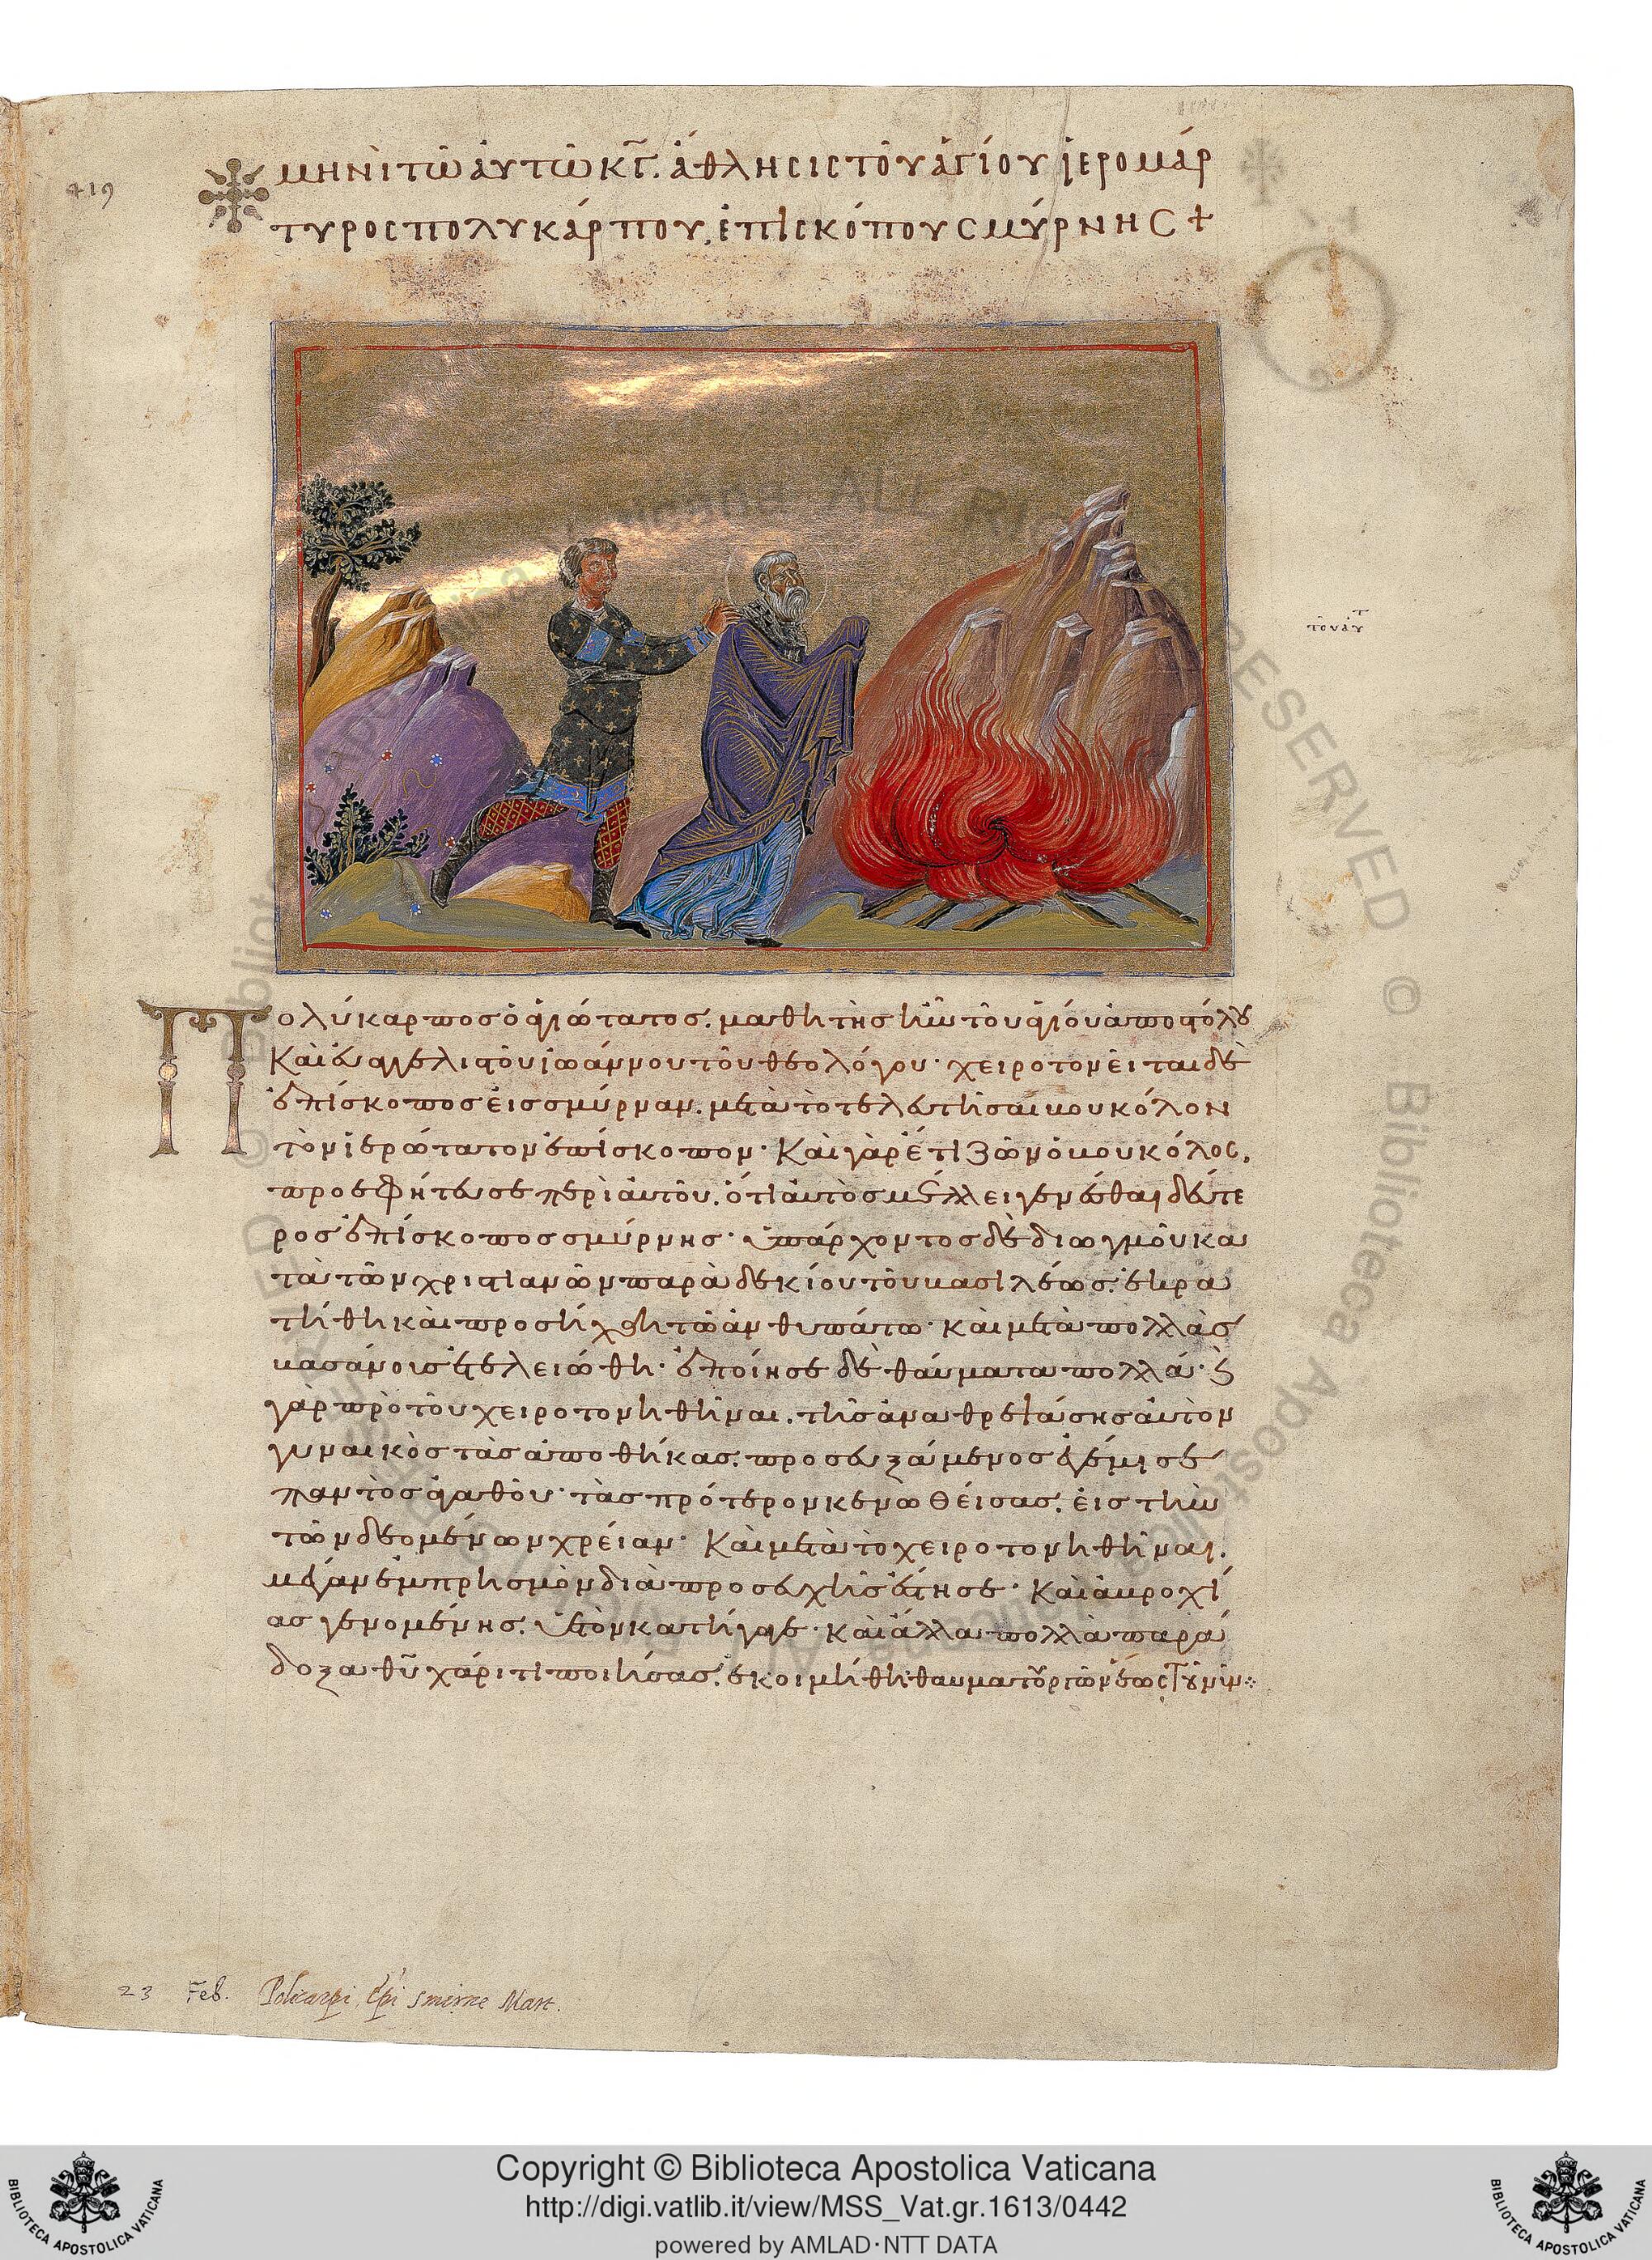 419
μηνὶ τῶ ἀυτῶ κγ. ἄθλησις τοῦ ἁγίου ἱερομάρ
τυρος πολυκάρπου, ἐπισκόπου σμύρνης +
τοῦ αὐτ
Πολύκαρπος ὁ ἁγιώτατος, μαθητὴς ἦν τοῦ ἁγίου ἀποστόλου
καὶ εὐαγγελιστοῦ ἰωάννου τοῦ θεολόγου· χειροτονεῖται δὲ
ἐπίσκοπος εἰς σμύρναν, μετὰ τὸ τελευτῆσαι βουκόλον
τὸν ἱερώτατον ἐπίσκοπον· καὶ γὰρ ἔτι ζῶν ὁ βουκόλος,
προεφήτευσε περὶ αὐτοῦ, ὅτι αὐτὸς μέλλει γενέσθαι δεύτε
ρος ἐπίσκοπος σμύρνης· ὑπάρχοντος δὲ διωγμοῦ κα
τὰ τῶν χριστιανῶν παρὰ δεκίου τοῦ βασιλέως, ἐκρα
τήθη καὶ προσήχθη τῶ ἀνθυπάτω· καὶ μετὰ πολλὰς
βασάνους ἐτελειώθη· ἐποίησε δὲ θαύματα πολλά· ἔτι
γὰρ πρὸ τοῦ χειροτονηθῆναι, τῆς ἀναθρεψάσης αὐτὸν
γυναικὸς τὰς ἀποθήκας, προσευξάμενος ἐγέμισε
παντὸς ἀγαθοῦ· τὰς πρότερον κενωθείσας, εἰς τὴν
τῶν δεομένων χρείαν· καὶ μετὰ τὸ χειροτονηθῆναι,
μέγαν ἐμπρησμὸν διὰ προσευχῆς ἔστησε· καὶ ἀβροχί
ας γενομένης, ὑετὸν κατήγαγε· καὶ ἄλλα πολλὰ παρά
δοξα θυ χάριτι ποιήσας, ἐκοιμήθη θαυματουργῶν ἕως τοῦ νῦν:
23 Feb. Policarpi, Epi Smirne Mart.
Copyright © Biblioteca Apostolica Vaticana
http://digi.vatlib.it/view/MSS_Vat.gr.1613/0442
powered by AMLAD·NTT DATA
BIBLIOTECA APOSTOLICA VATICANA
BIBLIOTECA APOSTOLICA VATICANA